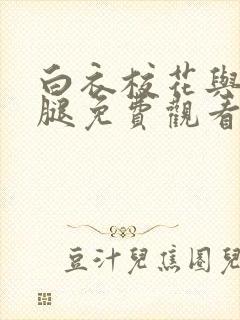 白衣校花與
腿免費觀看
豆汁兒焦圈兒